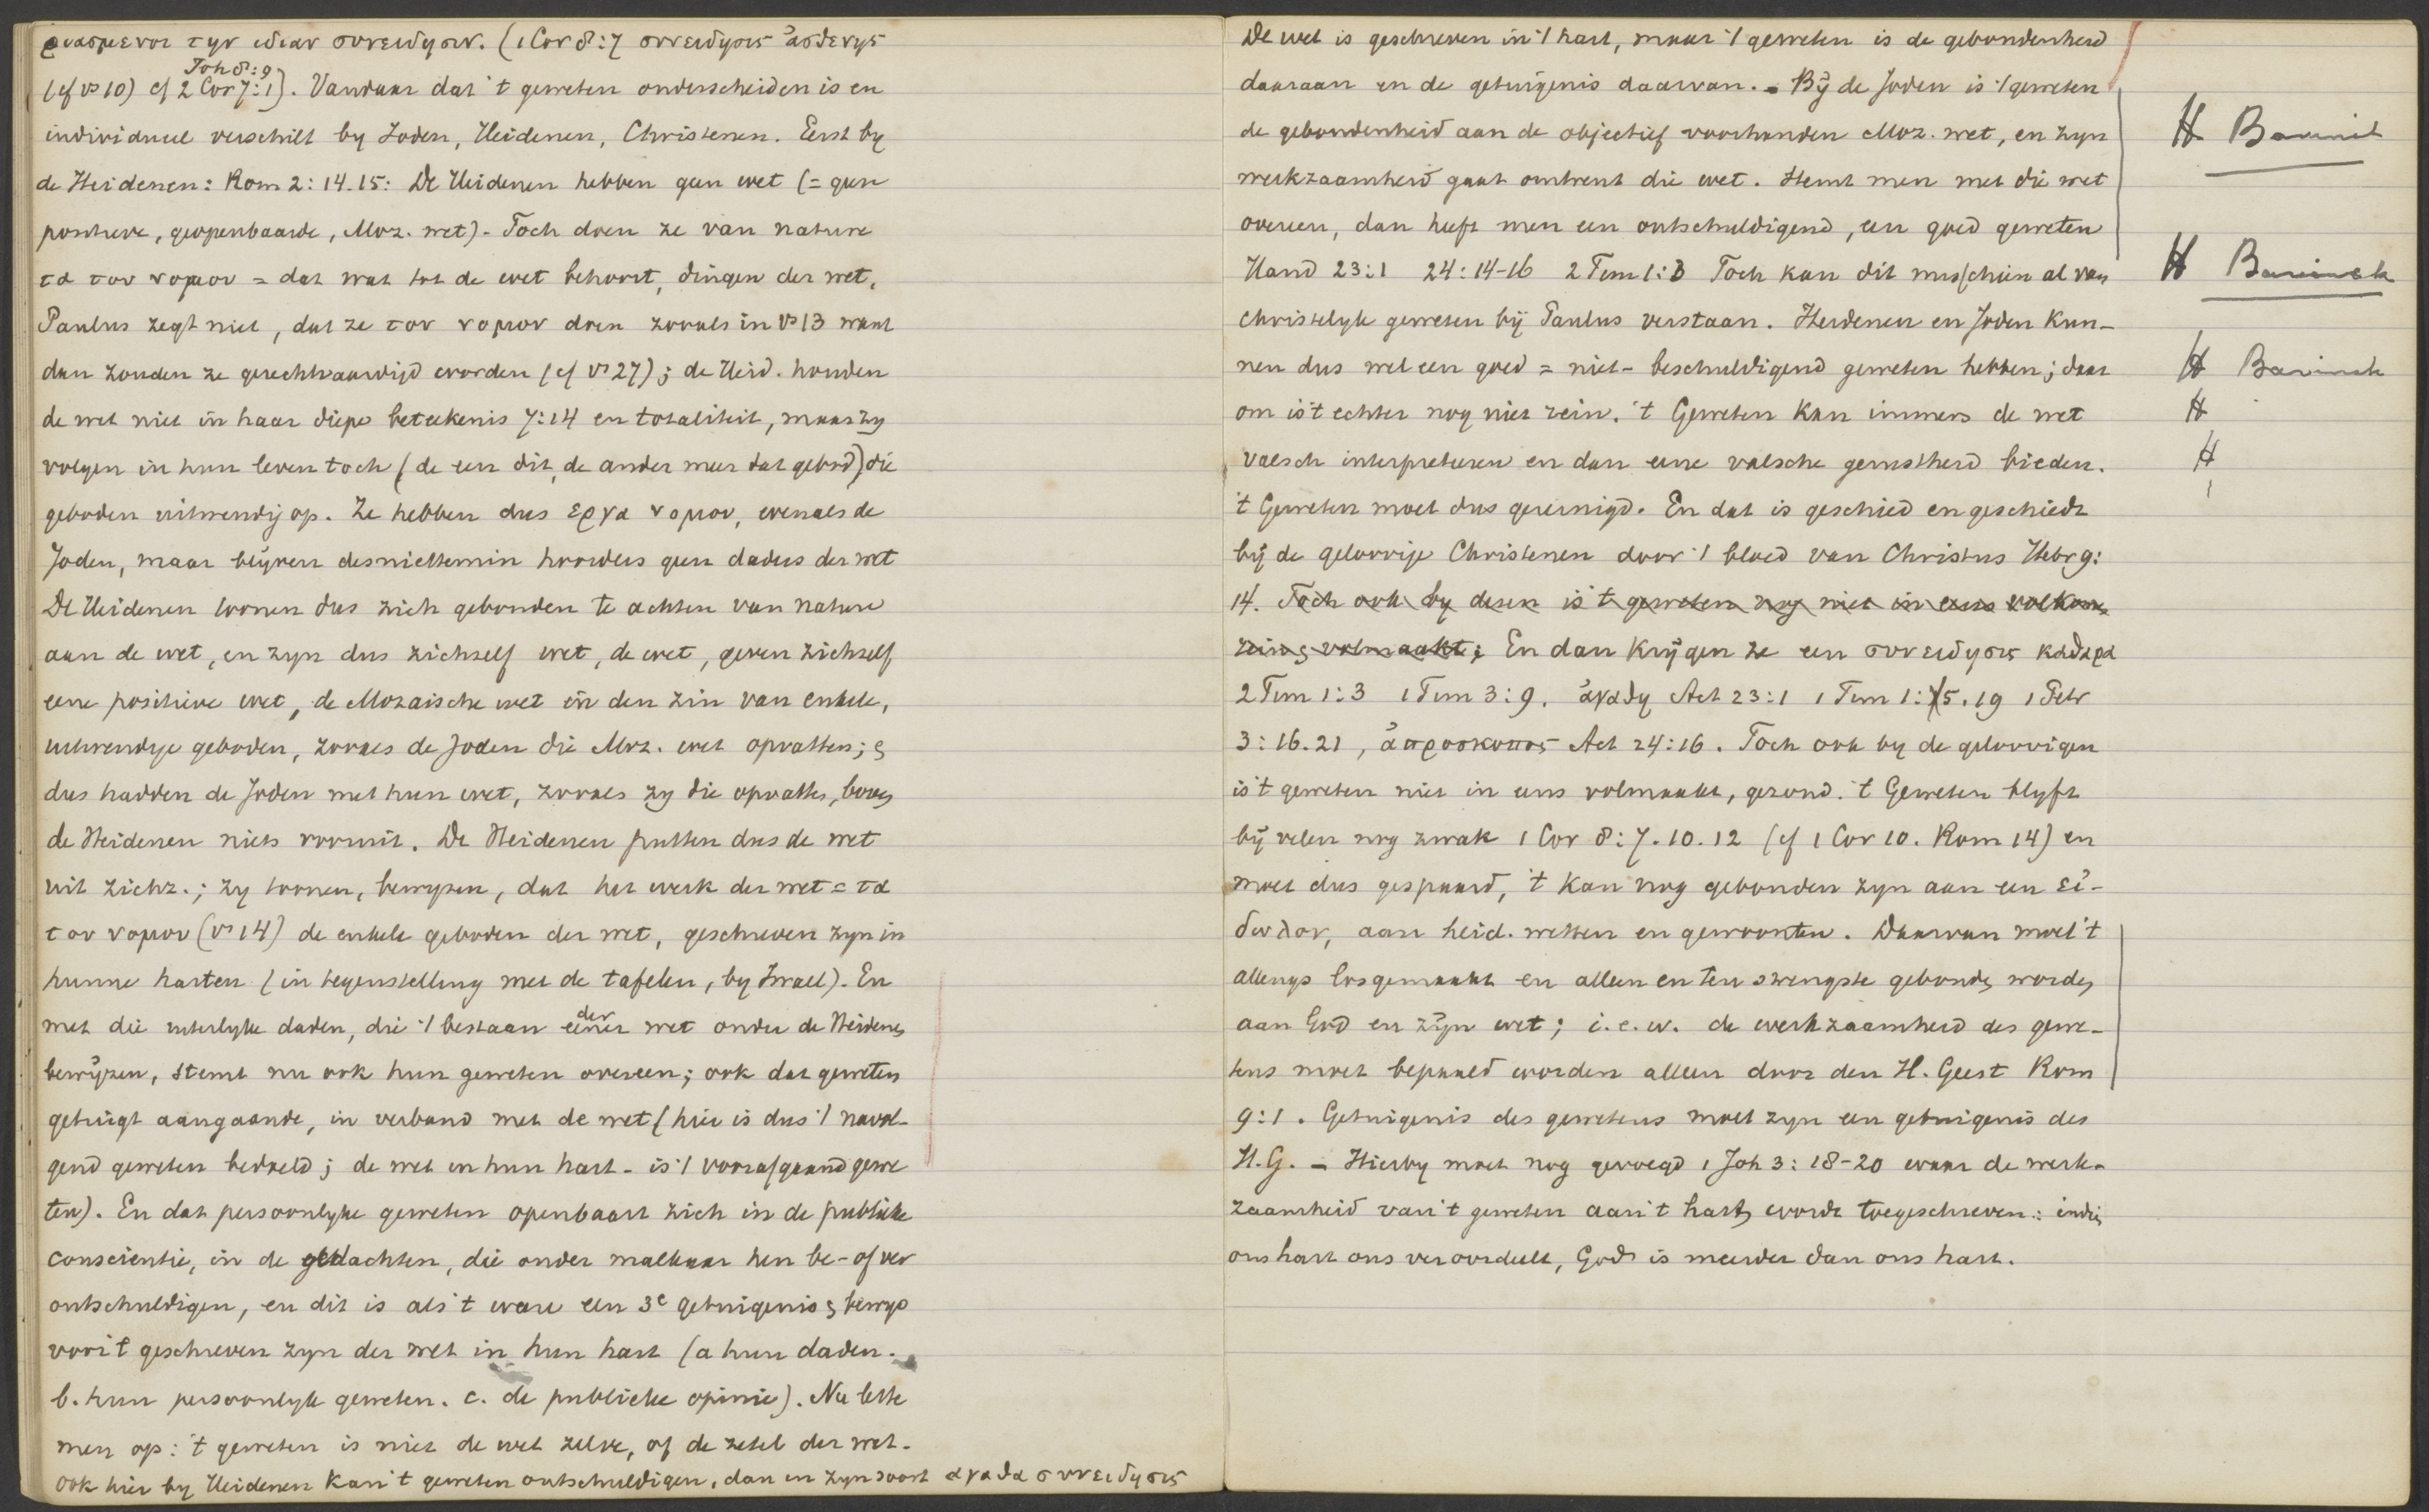 ριασμενοι την ιδιαν συνειδησιν. (1 Cor 8:7 συνειδησις ἀσθενης
Joh 8:9
(cf vs 10) cf 2 Cor 7:1). Vandaar dat 't geweten onderscheiden is en
individueel verschilt by Joden, Heidenen, Christenen. Eerst by
de Heidenen: Rom 2:14.15: De Heidenen hebben geen wet (= geen
positieve, geopenbaarde, Moz. wet). Toch doen ze van nature
τα του νομου = dat wat tot de wet behoort, dingen der wet.
Paulus zegt niet, dat ze τον νομον doen zooals in vs 13 want
dan zouden ze gerechtvaardigd worden (cf vs 27); de Heid. houden
de wet niet in haar diepe beteekenis 7:14 en totaliteit, maar zy
volgen in hun leven toch (de een dit, de ander meer dat gebod) die
geboden uitwendig op. Ze hebben dus εργα νομου, evenals de
Joden, maar blijven desniettemin hoorders geen daders der wet
De Heidenen toonen dus zich gebonden te achten van nature
aan de wet, en zyn dus zichzelf wet, de wet, geven zichzelf
eene positieve wet, de Mozaische wet in den zin van enkele,
uitwendige geboden, zooals de Joden die Moz. wet opvatten; &
dus hadden de Joden met hun wet, zooals zy die opvatten, boven
de Heidenen niets vooruit. De Heidenen putten dus de wet
uit zichz.; zy toonen, bewyzen, dat het werk der wet = τα
του νομου (vs 14) de enkele geboden der wet, geschreven zyn in
hunne harten (in tegenstelling met de tafelen, by Israel). En
met die uiterlyke daden, die 't bestaan der eener wet onder de Heidenen
bewijzen, stemt nu ook hun geweten overeen; ook dat geweten
getuigt aangaande, in verband met de wet (hier is dus 't navol-
gend geweten bedoeld; de wet in hun hart - is 't voorafgaand gewe
ten). En dat persoonlyke geweten openbaart zich in de publieke
conscientie, in de gedachten, die onder malkaar hen be- of ver
ontschuldigen, en dit is als 't ware een 3e getuigenis & bewys
voor 't geschreven zyn der wet in hun hart (a hun daden.
b. hun persoonlyk geweten. c. de publieke opinie). Nu lette
men op: 't geweten is niet de wet zelve, of de zetel der wet.
ook hier by Heidenen kan 't geweten ontschuldigen, dan in zyn soort αγαθα συνειδησις
De wet is geschreven in 't hart, maar 't geweten is de gebondenheid
daaraan en de getuigenis daarvan. - Bij de Joden is 't geweten
de gebondenheid aan de objectief voorhanden Moz. wet, en zyn
werkzaamheid gaat omtrent die wet. Stemt men met die wet
overeen, dan heeft men een ontschuldigend, een goed geweten
Hand 23:1 24:14-16 2 Tim 1:3 Toch kan dit misschien al van
christelyk geweten bij Paulus verstaan. Heidenen en Joden kun-
nen dus wel een goed = niet-beschuldigend geweten hebben; daar
om is 't echter nog niet rein. 't Geweten kan immers de wet
valsch interpreteren en dan eene valsche gerustheid bieden.
't Geweten moet dus gereinigd. En dat is geschied en geschiedt
bij de geloovige Christenen door 't bloed van Christus Hebr 9:
14. Toch ook by dezen is 't geweten nog niet in eens volkomen
rein & volmaakt; En dan krijgen ze een συνειδησις καθαρα
2 Tim 1:3 1 Tim 3:9. ἀγαθη Act 23:1 1 Tim 1:5.19 1 Petr
3:16.21, ἀπροσκοπος Act 24:16. Toch ook by de geloovigen
is 't geweten niet in eens volmaakt, gezond. 't Geweten blyft
bij velen nog zwak 1 Cor 8:7.10.12 (cf 1 Cor 10. Rom 14) en
moet dus gespaard, 't kan nog gebonden zyn aan een εἰ-
δωλον, aan heid. wetten en gewoonten. Daarvan moet 't
allengs losgemaakt en alleen en ten strengste gebonden worden
aan God en zijn wet; i.e.w. de werkzaamheid des gewe-
tens moet bepaald worden alleen door den H. Geest Rom
9:1. Getuigenis des gewetens moet zyn een getuigenis des
H.G. - Hierby moet nog gevoegd 1 Joh 3:18-20 waar de werk-
zaamheid van 't geweten aan 't hart wordt toegeschreven: indien
ons hart ons veroordeelt, God is meerder dan ons hart.
H Bavinck
H Bavinck
H Bavinck
H
H